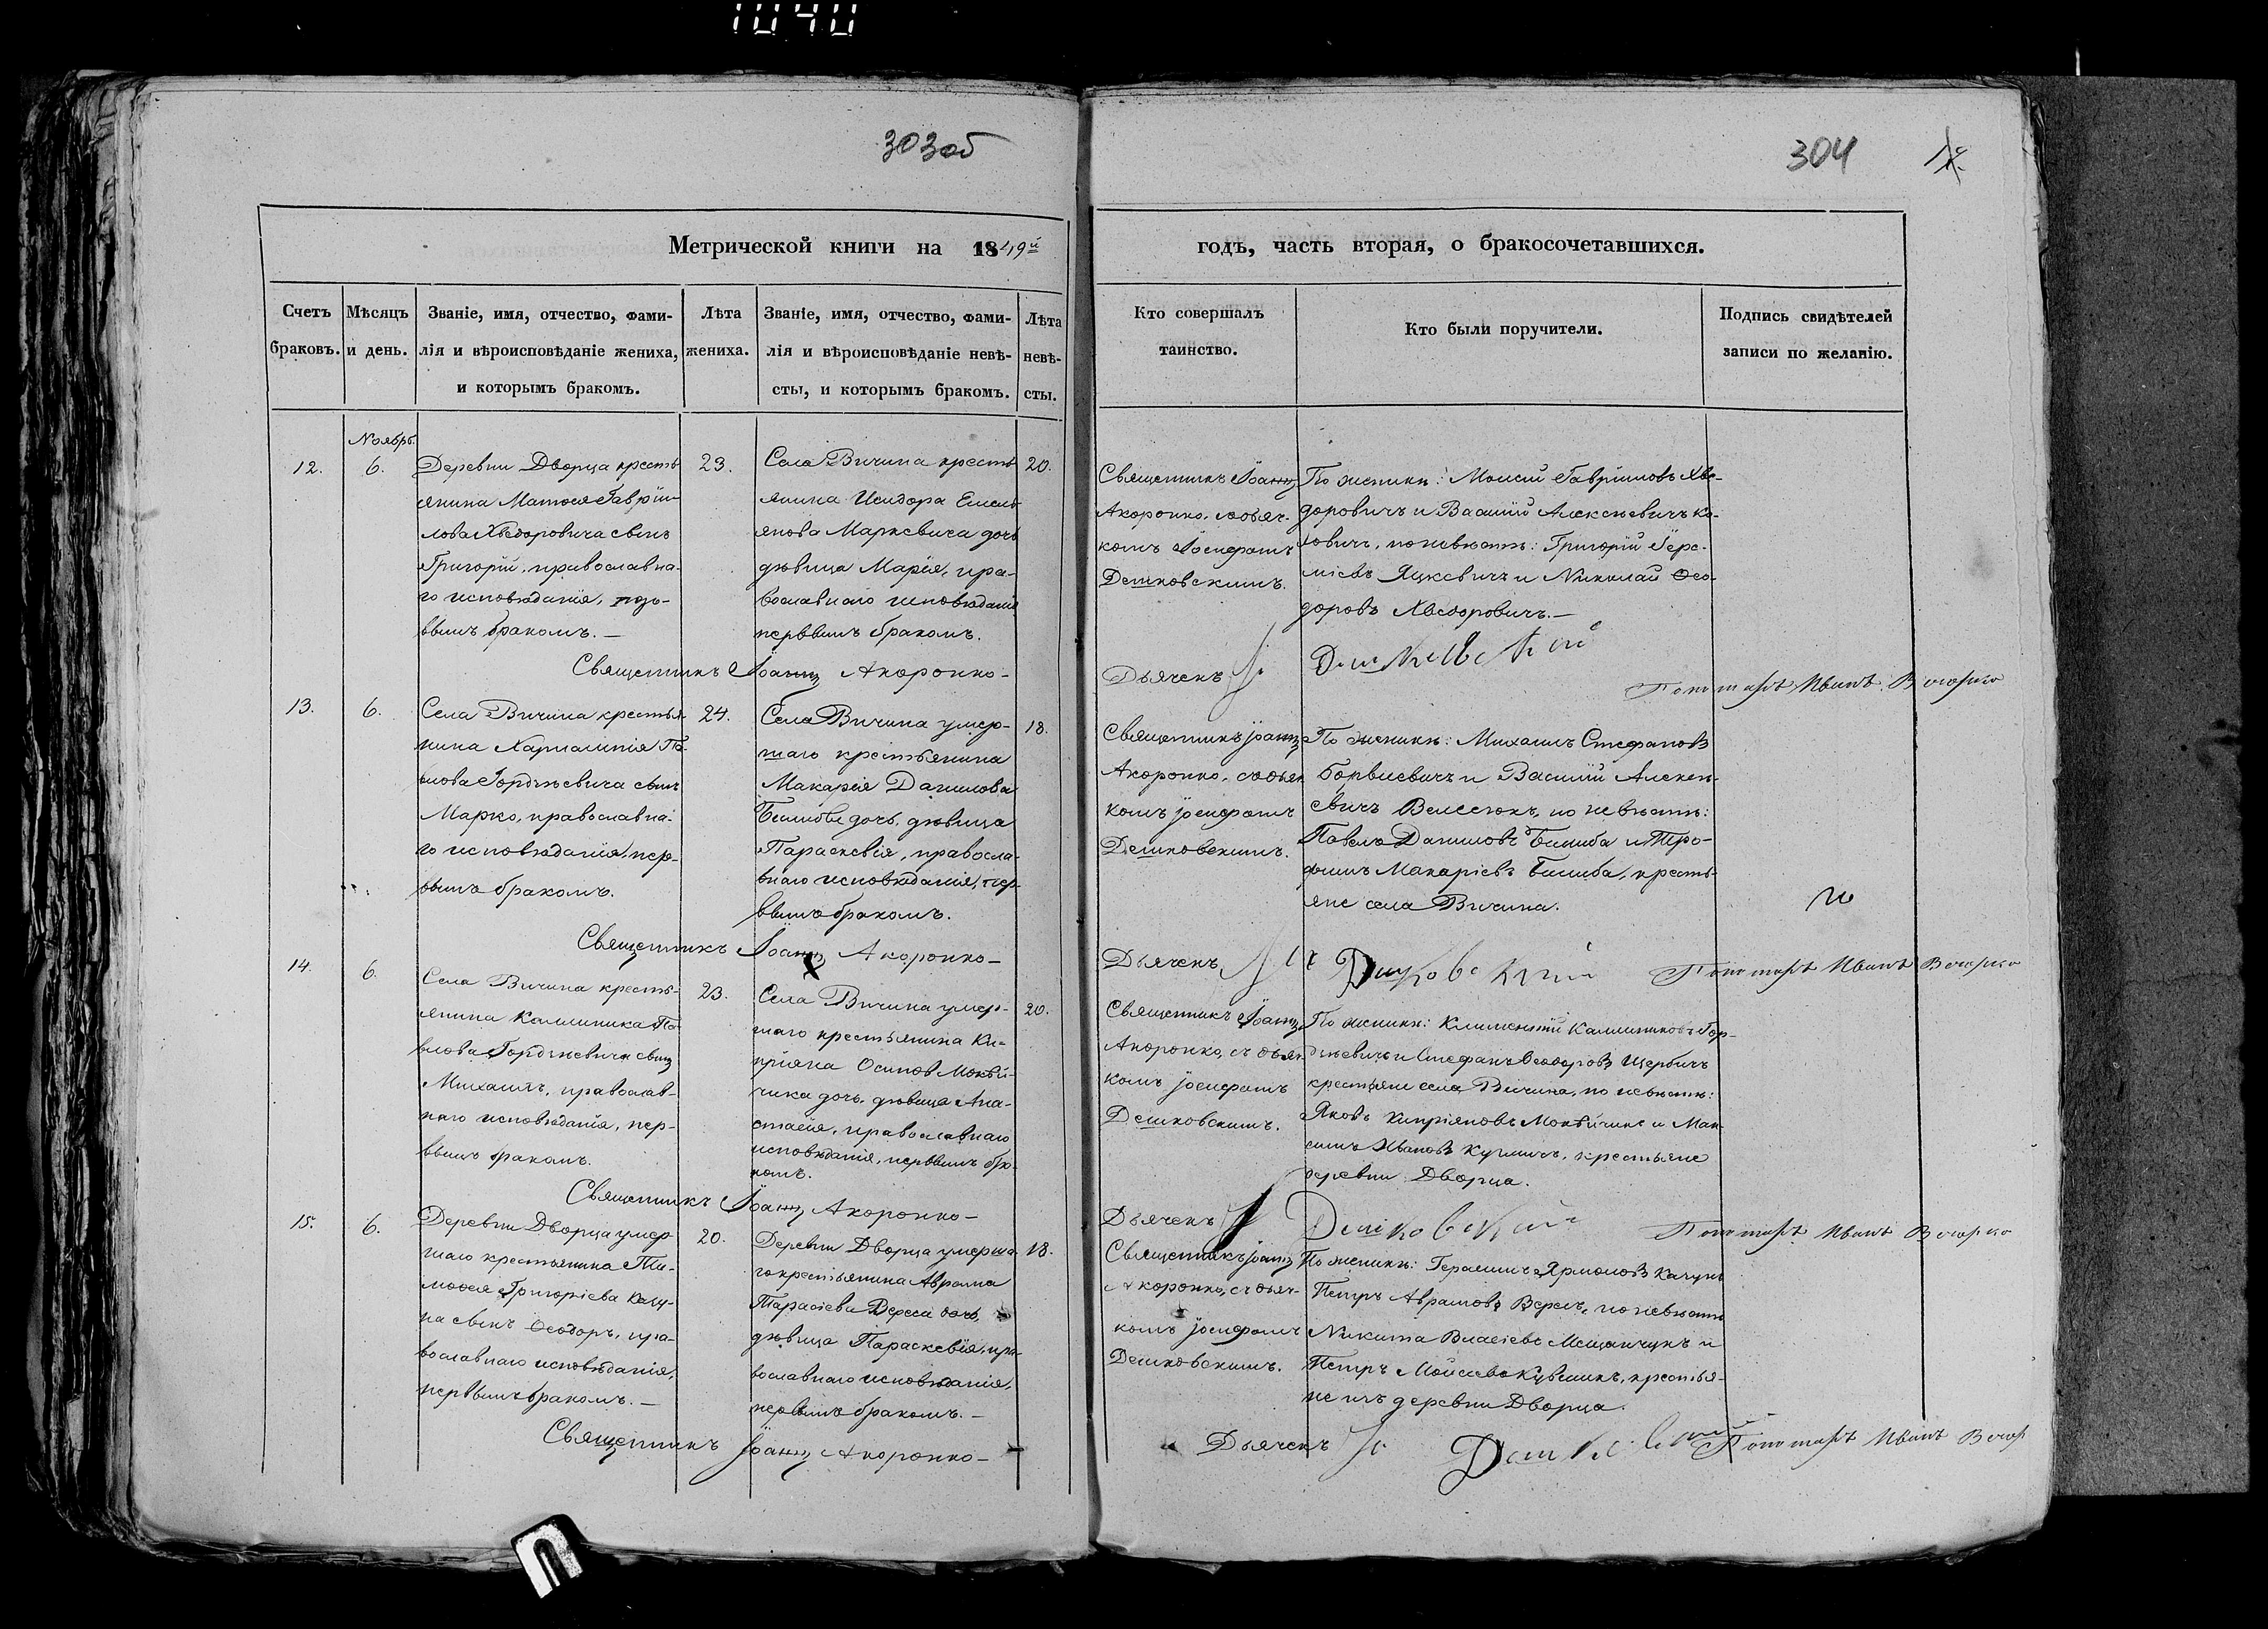 1040
303 об
304
Метрической книги на 1849й
годъ, часть вторая, о бракосочетавшихся.
Счетъ браковъ.
Мѣсяцъ и день.
Званіе, имя, отчество, фами-
лія и вѣроисповѣданіе жениха,
и которымъ бракомъ.
Лѣта
жениха.
Званіе, имя, отчество, фами-
лія и вѣроисповѣданіе невѣ-
сты, и которымъ бракомъ.
Лѣта
невѣ-
сты.
Кто совершалъ
таинство.
Кто были поручители.
Подпись свидѣтелей
записи по желанію.
Ноябр.
12.
6.
Деревни Дворца кресть
янина Матѳея Гаврии-
лова Хведоровича сынъ
Григорій, православна-
го исповѣданія,
вымъ бракомъ. —
23.
Села Вичина кресть
янина Исидора Емель
янова Маркевича дочь
дѣвица Марія, пра-
вославнаго исповѣданія
первымъ бракомъ.
20.
Священникъ Іоаннъ
Акоронко, съ дьяч-
комъ Іосифомъ
Дешковскимъ.
По женихѣ: Моисей Гавриловъ Хве-
доровичъ и Василій Алексѣевичъ Ко-
ловичъ, по невѣстѣ: Григорій
Яцкевичъ и Николай Ѳео-
доровъ Хведоровичъ. —
Священникъ Іоаннъ Акоронко —
Дьячекъ Дешковскій
Пономарь Иванъ Вечорко
13.
6.
Села Вичина крестья
нина Харлампія Па-
влова Гордѣевича сынъ
Марко, православна-
го исповѣданія, пер-
вымъ бракомъ.
24.
Села Вичина умер-
шаго крестьянина
Макарія Данилова
дочь, дѣвица
Параскевія, правосла-
внаго исповѣданія, пер
вымъ бракомъ.
18.
Священникъ Іоаннъ
Акоронко, съ дьяч
комъ Іосифомъ
Дешковскимъ.
По женихѣ: Михаилъ Стефановъ
и Василій Алексѣе-
вичъ Велесюкъ, по невѣстѣ:
Павелъ Даниловъ и Тро-
фимъ Макаріевъ кресть-
яне села Вичина.
Священникъ Іоаннъ Акоронко —
Дьячекъ Дешковскій
Пономарь Иванъ Вечорко
14.
6.
Села Вичина кресть-
янина Каллиника Па
влова Гордѣевича сынъ
Михаилъ, православ-
наго исповѣданія, пер-
вымъ бракомъ.
23.
Села Вичина умер-
шаго крестьянина Ки-
пріяна Осипова
чика дочь, дѣвица Ана-
стасія, православнаго
исповѣданія, первымъ бра-
комъ.
20.
Священникъ Іоаннъ
Акоронко, съ дьяч
комъ Іосифомъ
Дешковскимъ.
По женихѣ: Климентій Каллиниковъ Гор-
дѣевичъ и Стефанъ Ѳеодоровъ Щербичъ
крестьяне села Вичина, по невѣстѣ:
Яковъ Кипріяновъ и Мак
симъ Ивановъ крестьяне
деревни Дворца.
Священникъ Іоаннъ Акоронко —
Дьячекъ Дешковскій
Пономарь Иванъ Вечорко
15.
6.
Деревни Дворца умер
шаго крестьянина Ти-
моѳея Григоріева Качу-
на сынъ Ѳеодоръ, пра-
вославнаго исповѣданія,
первымъ бракомъ. —
20.
Деревни Дворца умерша
го крестьянина Аврама
Тарасіева Вереса дочь,
дѣвица Параскевія, пра-
вославнаго исповѣданія,
первымъ бракомъ. —
18.
Священникъ Іоаннъ
Акоронко, съ дьяч-
комъ Іосифомъ
Дешковскимъ.
По женихѣ: Герасимъ Ярмоловъ Качунъ
Петръ Аврамовъ Вересъ, по невѣстѣ
Никита Власіевъ Мещанчукъ и
Петръ Мойсеевъ крестья-
не изъ деревни Дворца.
Священникъ Іоаннъ Акоронко —
Дьячекъ Дешковскій
Пономарь Иванъ Вечор